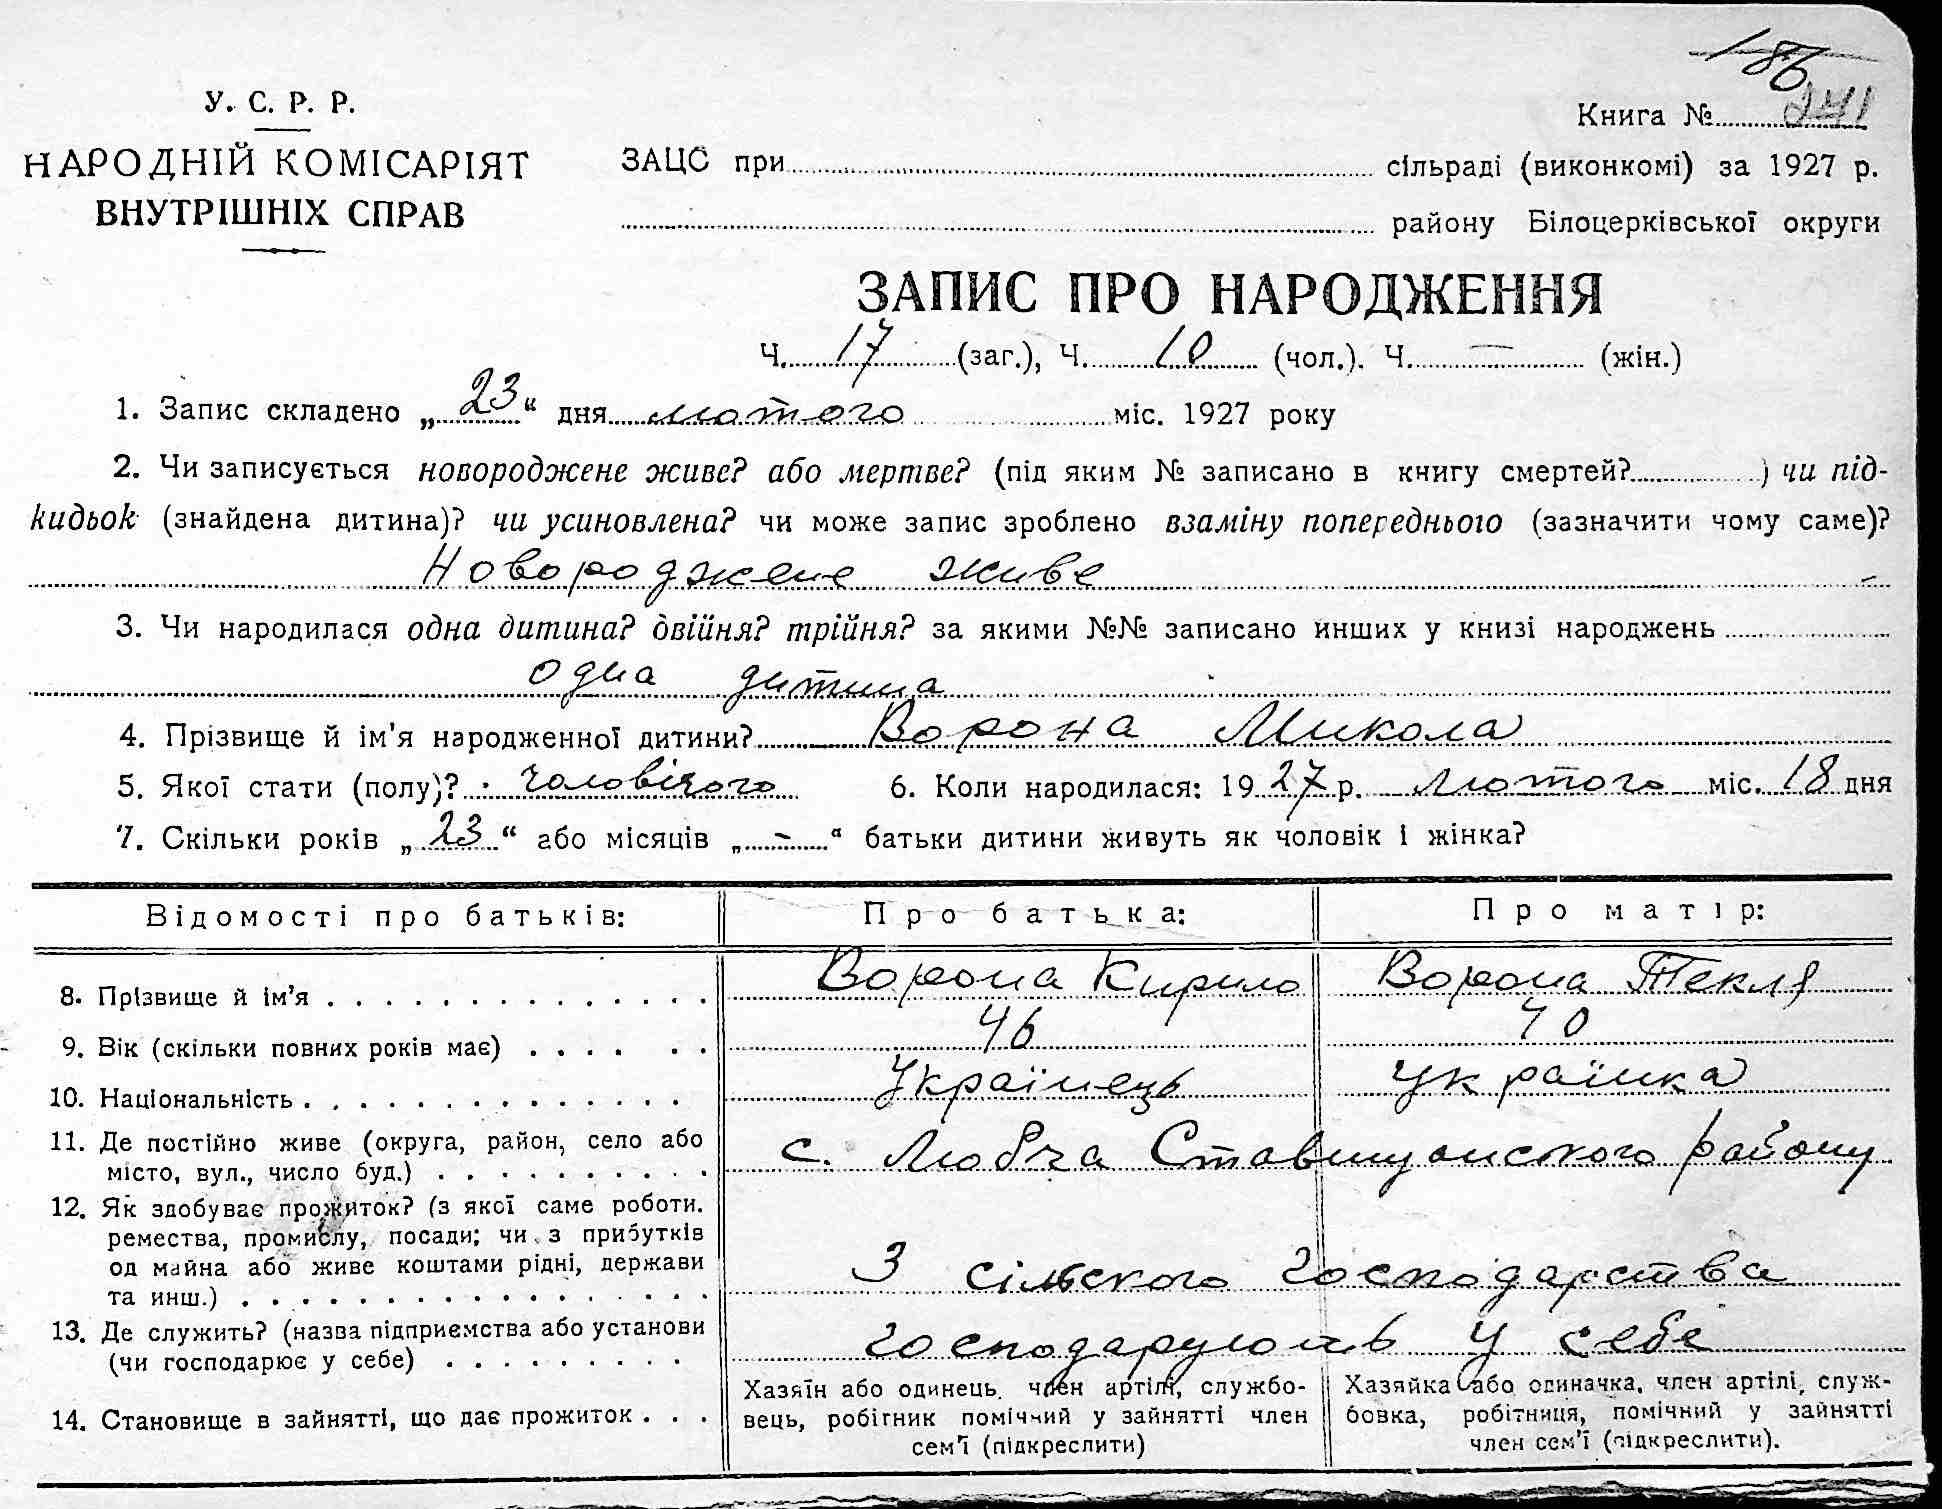 186
241
У. С. Р. Р.
НАРОДНІЙ КОМІСАРІЯТ
ВНУТРІШНІХ СПРАВ
Книга №
ЗАЦС при сільраді (виконкомі) за 1927 р.
району Білоцерківської округи
ЗАПИС ПРО НАРОДЖЕННЯ
Ч. 17 (заг.), Ч. 10 (чол.). Ч. — (жін.)
1. Запис складено „23“ дня лютого міс. 1927 року
2. Чи записується новороджене живе? або мертве? (під яким № записано в книгу смертей?) чи під-
кидьок (знайдена дитина)? чи усиновлена? чи може запис зроблено взаміну попереднього (зазначити чому саме)?
Новороджене живе
3. Чи народилася одна дитина? двійня? трійня? за якими №№ записано инших у книзі народжень
одна дитина
4. Прізвище й ім'я народженної дитини? Ворона Микола
5. Якої стати (полу)? чоловічого 6. Коли народилася: 1927 р. лютого міс. 18 дня
7. Скільки років „23“ або місяців „-“ батьки дитини живуть як чоловік і жінка?
Відомості про батьків: Про батька: Про матір:
8. Прізвище й ім'я Ворона Кирило Ворона Текля
9. Вік (скільки повних років має) 46 40
10. Національність Українець Українка
11. Де постійно живе (округа, район, село або
місто, вул., число буд.) с. Любча Ставищанского району
12. Як здобуває прожиток? (з якої саме роботи.
ремества, промислу, посади; чи з прибутків
од майна або живе коштами рідні, держави
та инш.) З сільского господарства
13. Де служить? (назва підприємства або установи
(чи господарює у себе) господарують у себе
14. Становище в зайнятті, що дає прожиток
Хазяїн або одинець, член артілі, службо-
вець, робітник помічний у зайнятті член
сем'ї (підкреслити)
Хазяйка або одиначка, член артілі, служ-
бовка, робітниця, помічний у зайнятті
член сем'ї (підкреслити).